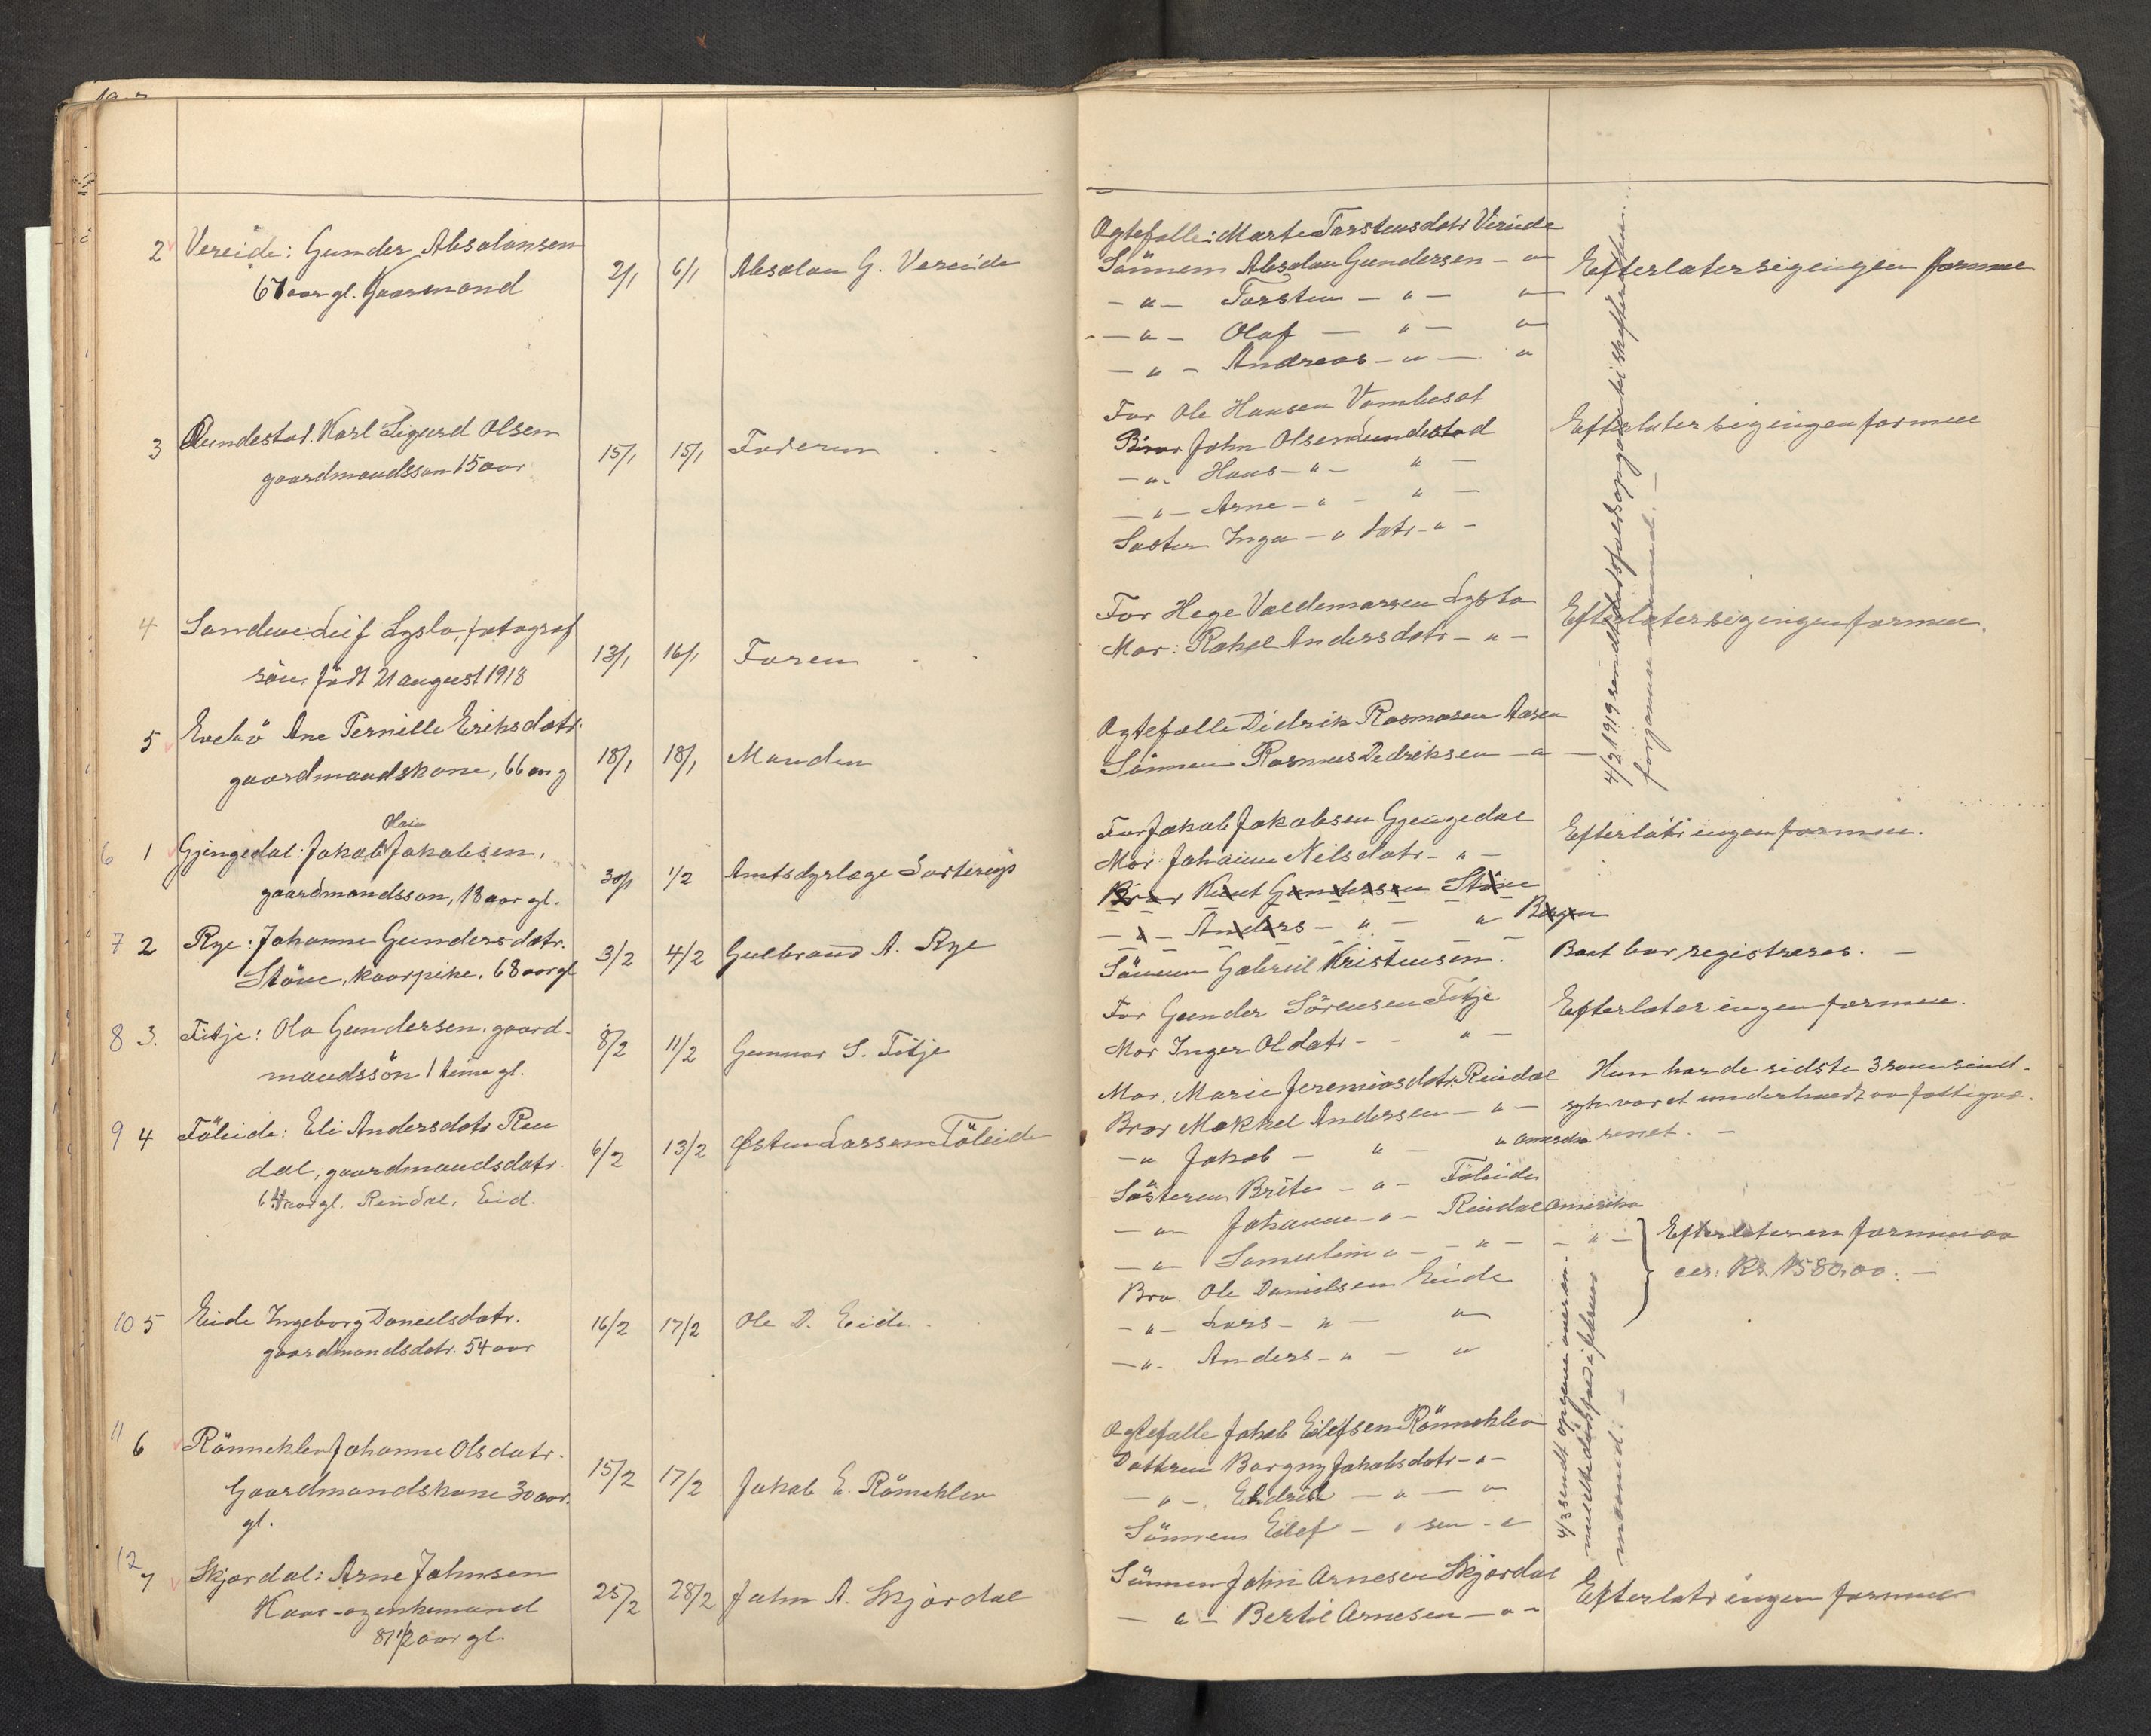 2 Vereide: Gunder Absalonsen
67 aar gl. Gaarmand
2/1 6/1 Absalon G. Vereide
Ogtefalle: Marte Torstensdatr Vereide
Sönnen Absalon Gundersen - " -
- " - Torsten - " - "
- " - Olaf - " - "
- " - Andreas - " - "
Efterlater sig ingen formue
3 Lundestad. Karl Sigurd Olsen
gaardmandssön 15 aar
15/1 15/1 Faderen
Far Ole Hansen
Bror John Olsen Lundestad
- " - Hans - " - " -
- " - Arne - " - " -
Søster Inga - " datr - " -
Efterlater sig ingen formue
4 Sandene: Leif Lyslo, fotograf
sön, født 21 august 1918
13/1 16/1 Faren
Far Hege Valdemarsen Lyslo
Mor: Rakel Andersdatr - " -
Efterlater sig ingen formue.
5 Evebø Ane Pernille Eriksdatr.
gaardmandskone, 66 aar g
18/1 18/1 Manden
Ogtefalle Didrik Rasmusen Aasen
Sönnen Rasmus Dedriksen - " -
4/2 1919 sendt dødsfaldsopgave til skifteretten
for januar maaned. -
6 1 Gjengedal: Jakob Olai Jakobsen,
gaardmandssøn, 18 aar gl.
30/1 1/2 Amtsdyrlæge
Far Jakob Jakobsen Gjengedal
Mor Johanne Nilsdatr - " -
Efterlatr ingen formue.
7 2 Rye: Johanne Gundersdatr.
Støve, kaarpike, 68 aar gl
3/2 4/2 Gulbrand A. Rye
Bror Knut Gundersen Støve
- " - Anders - " - " Bergen
Sönnen Gabriel Kristensen.
Boet bør registreres. -
8 3. Fitje: Ola Gundersen. gaard-
mandssön 1 time gl.
8/2 11/2 Gunnar S. Fitje
Far Gunder Sörensen Fitje
Mor Inger Oldatr - " -
Efterlater ingen formue.
9 4 Föleide: Eli Andersdatr Ren
dal, gaardmandsdatr.
64 aar gl. Reindal, Eid.
6/2 13/2 Østen Larssen Föleide
Mor. Marie Jeremiasdatr Reindal
Bror Makkel Andersen - " -
- " Jakob - " - " Amerika
Søsteren Brite - " - Föleide
- " - Johanne - " - Reindal Amerika
- " - Samuline " - - " - - " -
Hun har de sidste 3 aar
været underholdt av fattigvæ-
senet. -
10 5 Eide Ingeborg Danielsdatr.
gaardmandsdatr. 54 aar
16/2 17/2 Ole D. Eide.
Bro. Ole Danielsen Eide
- " - Lars - " - "
- " - Anders - " - "
Efterlater en formue av
ca: Kr. 1580,00. -
11 6 Rönnekleiv Johanne Olsdatr.
Gaardmandskone 30 aar.
gl.
15/2 17/2 Jakob E. Rönneklev
Ogtefalle Jakob Eilefsen Rönneklev
Dattren Borgny Jakobsdatr - " -
- " - Eldrid - " - "
Sönnen Eilef - " sen - "
4/3 sendt opgave over an-
meldte dødsfald i februar
maaned. -
12 7 Skjordal: Arne Johnsen
Kaar- og enkemand
87 1/2 aar gl.
25/2 28/2 John A. Skjordal
Sönnen John Arnesen Skjordal
- " - Bertil Arnesen - " -
Efterlatr ingen formue